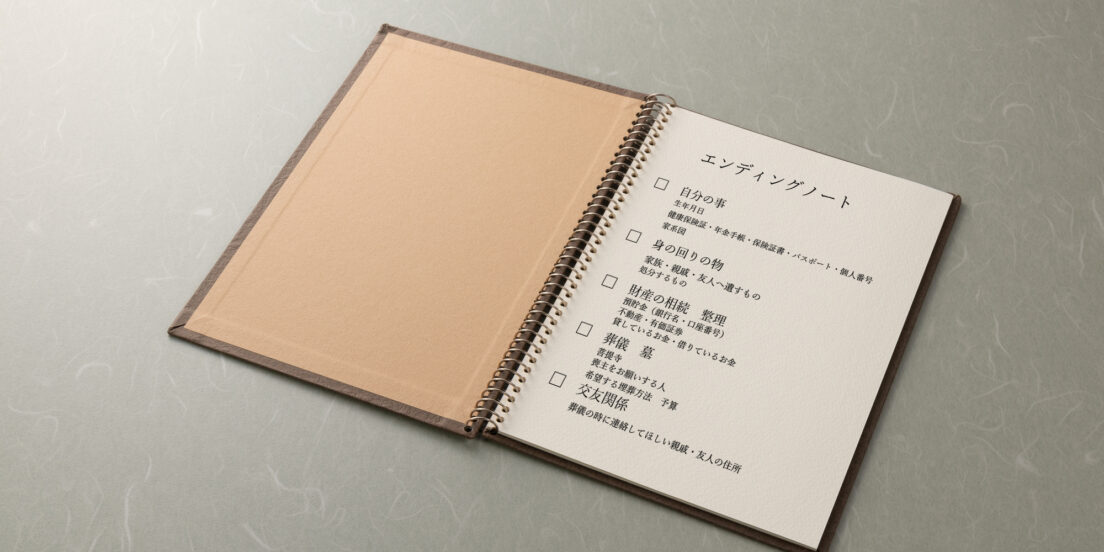 エンディングノート
□ 自分の事
生年月日
健康保険証・年金手帳・保険証書・パスポート・個人番号
家系図
□ 身の回りの物
家族・親戚・友人へ遺すもの
処分するもの
□ 財産の相続　整理
預貯金（銀行名・口座番号）
不動産・有価証券
貸しているお金・借りているお金
□ 葬儀　墓
菩提寺
喪主をお願いする人
希望する埋葬方法　予算
□ 交友関係
葬儀の時に連絡してほしい親戚・友人の住所